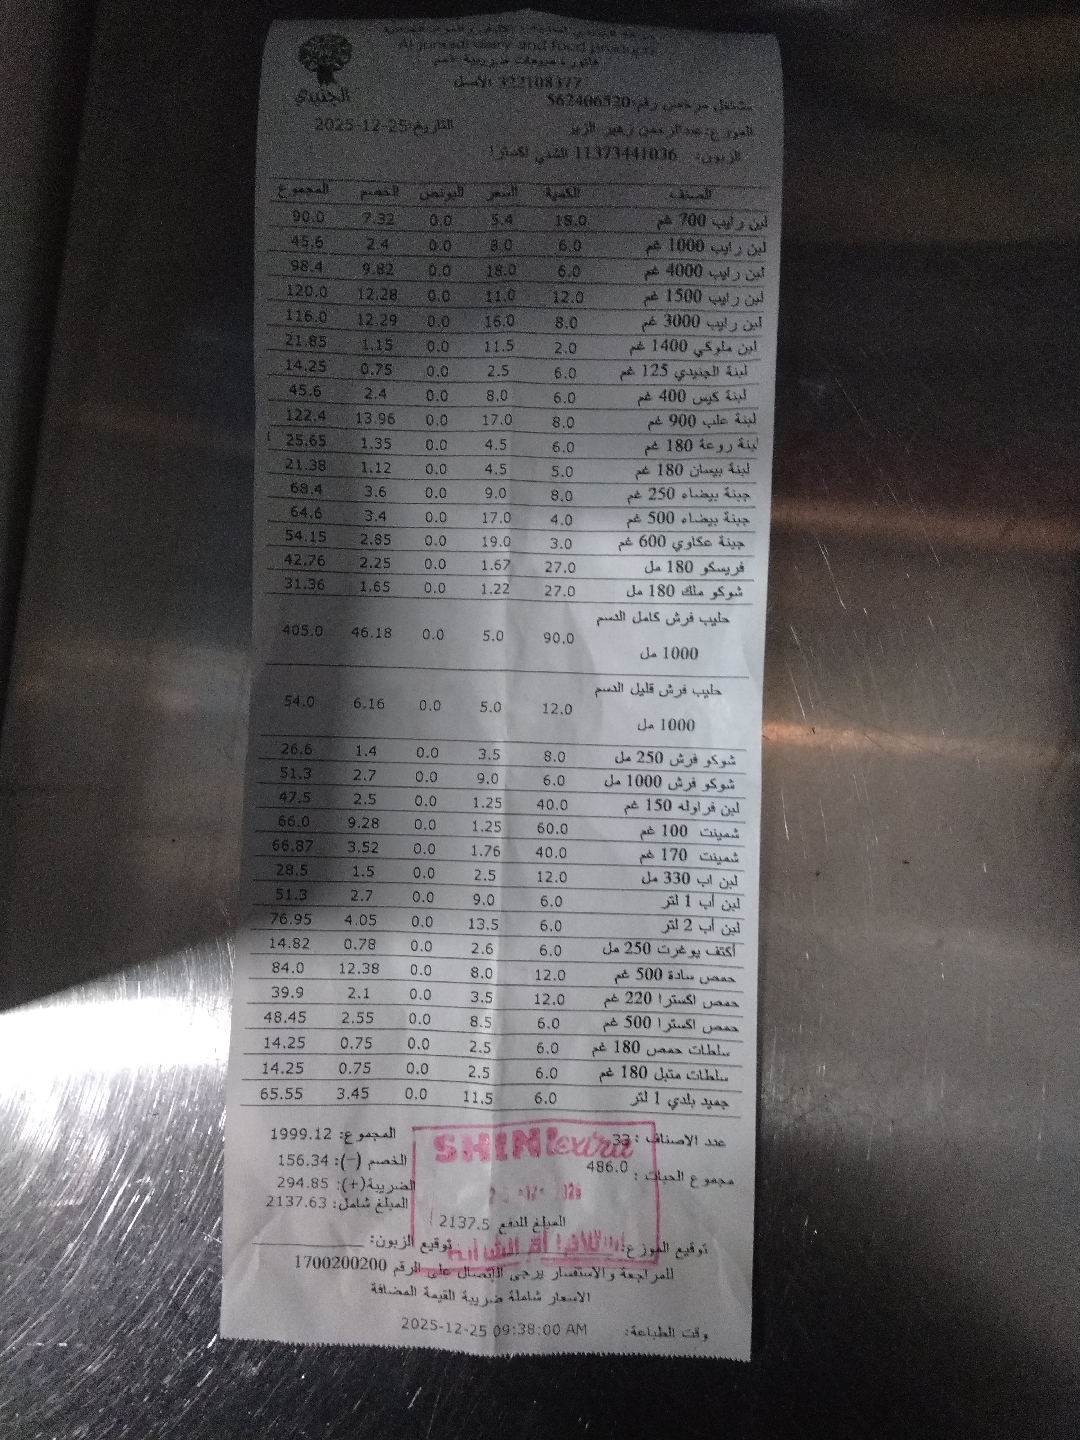 الجنيدي
Al juneidi dairy and food products
فاتورة مبيعات ضريبية
322108377 الأصل
مشتغل مرخص رقم:562406520
الموزع:عبدالرحمن زهير الزير التاريخ:2025-12-25
الزبون: 11373441036 الشني اكسترا
الصنف الكمية السعر البونص الخصم المجموع
لبن رايب 700 غم 18.0 5.4 0.0 7.32 90.0
لبن رايب 1000 غم 6.0 8.0 0.0 2.4 45.6
لبن رايب 4000 غم 6.0 18.0 0.0 9.82 98.4
لبن رايب 1500 غم 12.0 11.0 0.0 12.28 120.0
لبن رايب 3000 غم 8.0 16.0 0.0 12.29 116.0
لبن ملوكي 1400 غم 2.0 11.5 0.0 1.15 21.85
لبنة الجنيدي 125 غم 6.0 2.5 0.0 0.75 14.25
لبنة كيس 400 غم 6.0 8.0 0.0 2.4 45.6
لبنة علب 900 غم 8.0 17.0 0.0 13.96 122.4
لبنة روعة 180 غم 6.0 4.5 0.0 1.35 25.65
لبنة بيسان 180 غم 5.0 4.5 0.0 1.12 21.38
جبنة بيضاء 250 غم 8.0 9.0 0.0 3.6 68.4
جبنة بيضاء 500 غم 4.0 17.0 0.0 3.4 64.6
جبنة عكاوي 600 غم 3.0 19.0 0.0 2.85 54.15
فريسكو 180 مل 27.0 1.67 0.0 2.25 42.76
شوكو ملك 180 مل 27.0 1.22 0.0 1.65 31.36
حليب فرش كامل الدسم
1000 مل 90.0 5.0 0.0 46.18 405.0
حليب فرش قليل الدسم
1000 مل 12.0 5.0 0.0 6.16 54.0
شوكو فرش 250 مل 8.0 3.5 0.0 1.4 26.6
شوكو فرش 1000 مل 6.0 9.0 0.0 2.7 51.3
لبن فراوله 150 غم 40.0 1.25 0.0 2.5 47.5
شمينت 100 غم 60.0 1.25 0.0 9.28 66.0
شمينت 170 غم 40.0 1.76 0.0 3.52 66.87
لبن اب 330 مل 12.0 2.5 0.0 1.5 28.5
لبن أب 1 لتر 6.0 9.0 0.0 2.7 51.3
لبن أب 2 لتر 6.0 13.5 0.0 4.05 76.95
أكتف يوغرت 250 مل 6.0 2.6 0.0 0.78 14.82
حمص سادة 500 غم 12.0 8.0 0.0 12.38 84.0
حمص اكسترا 220 غم 12.0 3.5 0.0 2.1 39.9
حمص اكسترا 500 غم 6.0 8.5 0.0 2.55 48.45
سلطات حمص 180 غم 6.0 2.5 0.0 0.75 14.25
سلطات متبل 180 غم 6.0 2.5 0.0 0.75 14.25
جميد بلدي 1 لتر 6.0 11.5 0.0 3.45 65.55
عدد الاصناف : 33 المجموع: 1999.12
SHINI extra
مجموع الحبات : 486.0 الخصم (-): 156.34
الضريبة(+): 294.85
المبلغ شامل: 2137.63
المبلغ للدفع 2137.5
توقيع الموزع: توقيع الزبون:
للمراجعة والاستفسار يرجى الاتصال على الرقم 1700200200
الاسعار شاملة ضريبة القيمة المضافة
وقت الطباعة: 2025-12-25 09:38:00 AM